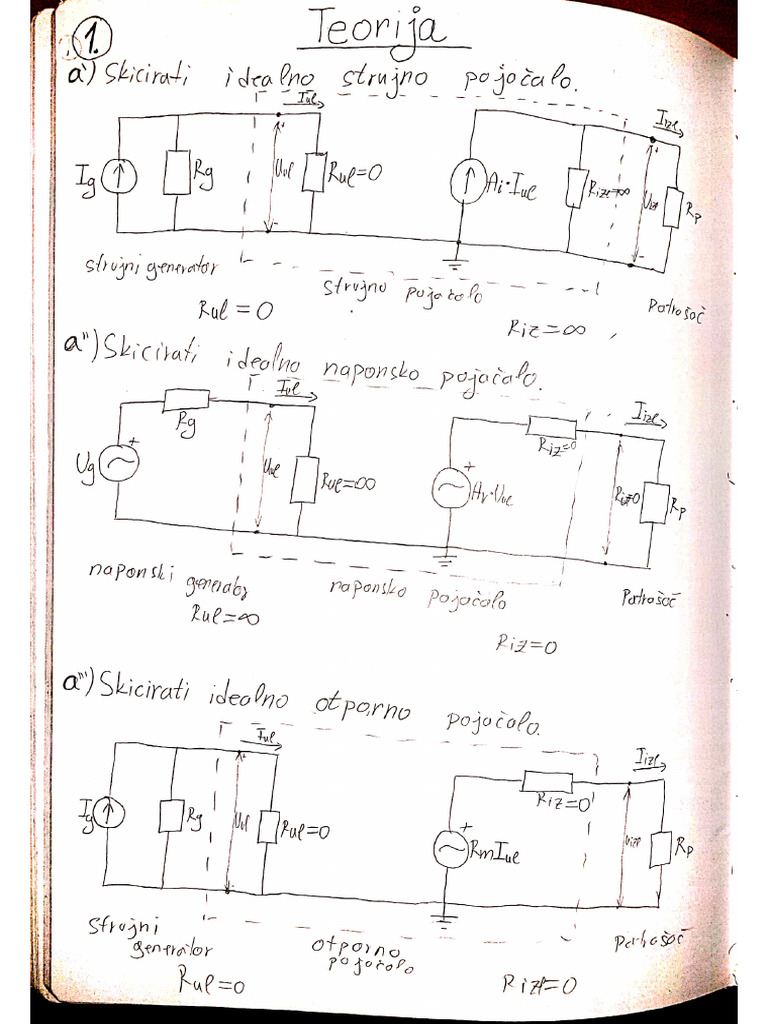 Teorija
1.
a') Skicirati idealno strujno pojočalo.
Iul
Iizl
Ig
Rg
Uul
Rul=0
Ai·Iul
Rizl=∞
Uizl
Rp
strujni generator
strujno pojočalo
Potrošoč
Rul=0
Riz=∞
a'') Skicirati idealno naponsko pojočalo.
Iul
Iizl
Rg
Riz=0
Ug
Uul
Rul=∞
Av·Uul
Rp
naponski generator
naponsko pojočalo
Potrošoč
Rul=∞
Riz=0
a''') Skicirati idealno otporno pojočalo.
Iul
Iizl
Riz=0
Ig
Rg
Uul
Rul=0
RmIul
Rp
Strujni
generator
otporno
pojočalo
Potrošoč
Rul=0
Rizl=0